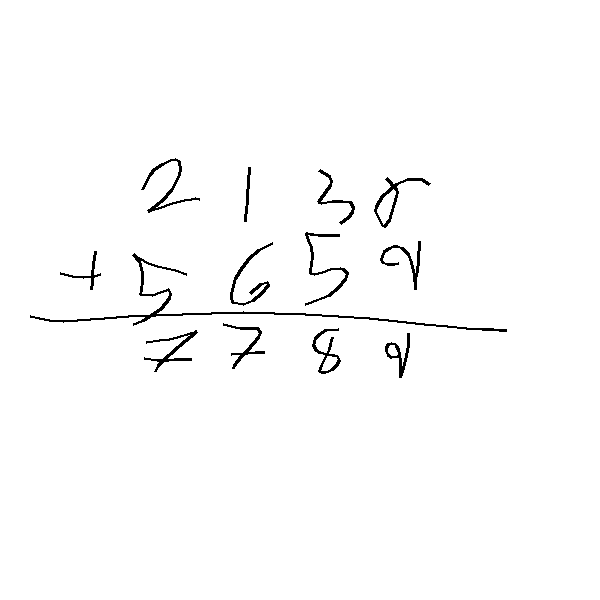 2130
+ 5659
7789